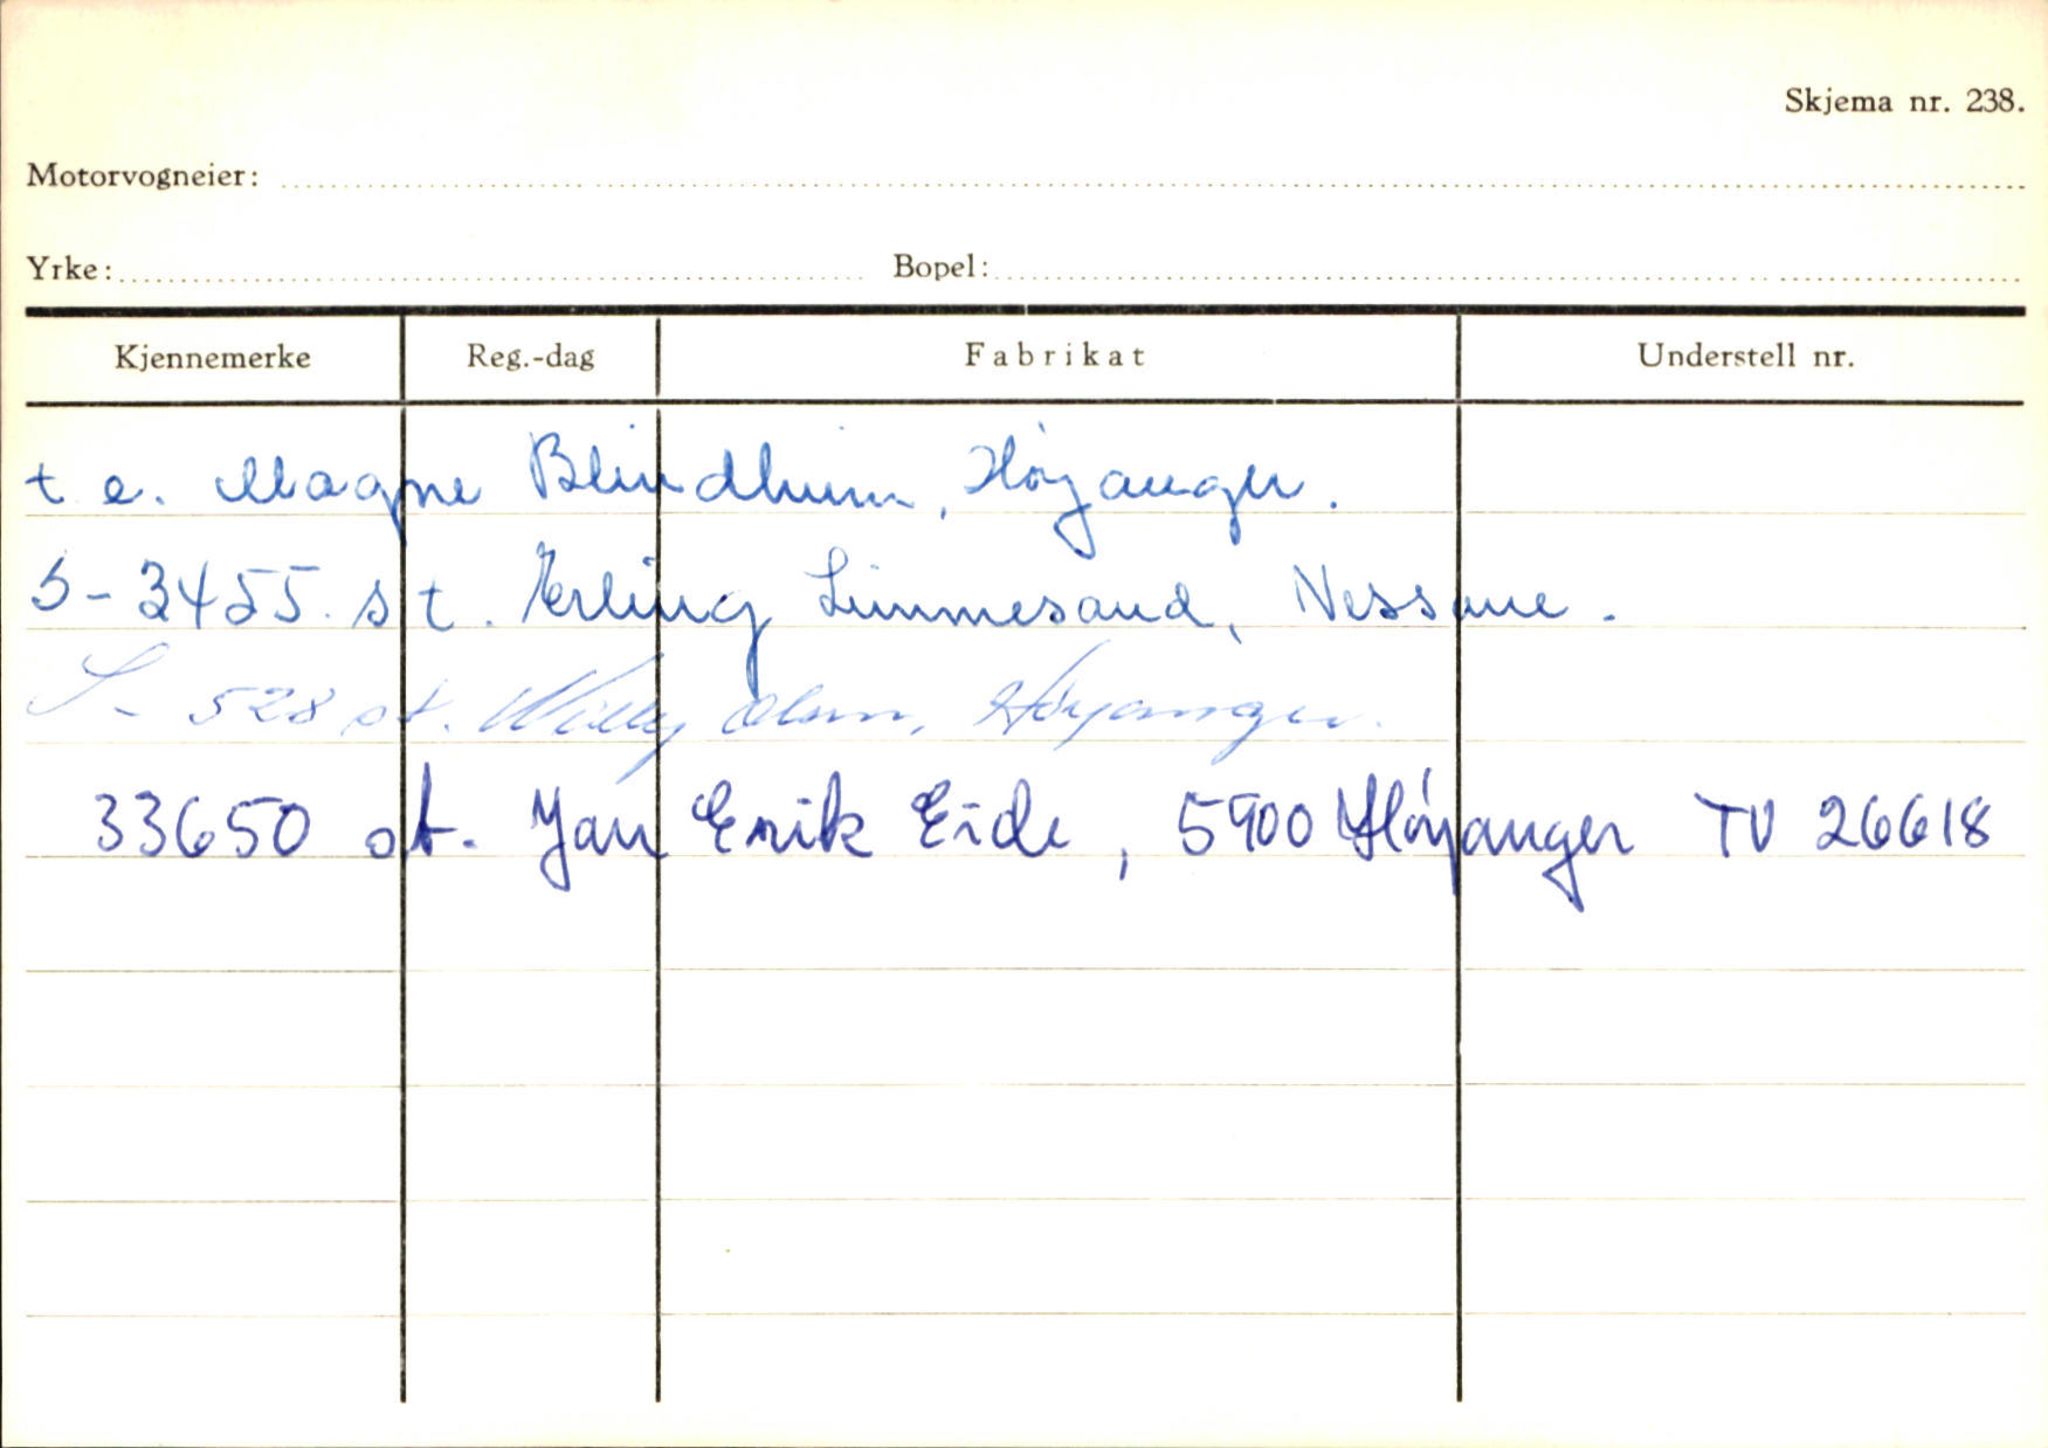 Skjema nr. 238.
Motorvogneier:
Yrke: Bopel:
Kjennemerke Reg.-dag Fabrikat Understell nr.
t. e. Magne Blindheim, Høyanger.
S-3455. st. Erling Linmesand, Nessane.
S- 528 st. Willy Olsen, Høyanger.
33650 st. Jan Erik Eide, 5900 Høyanger TV 26618